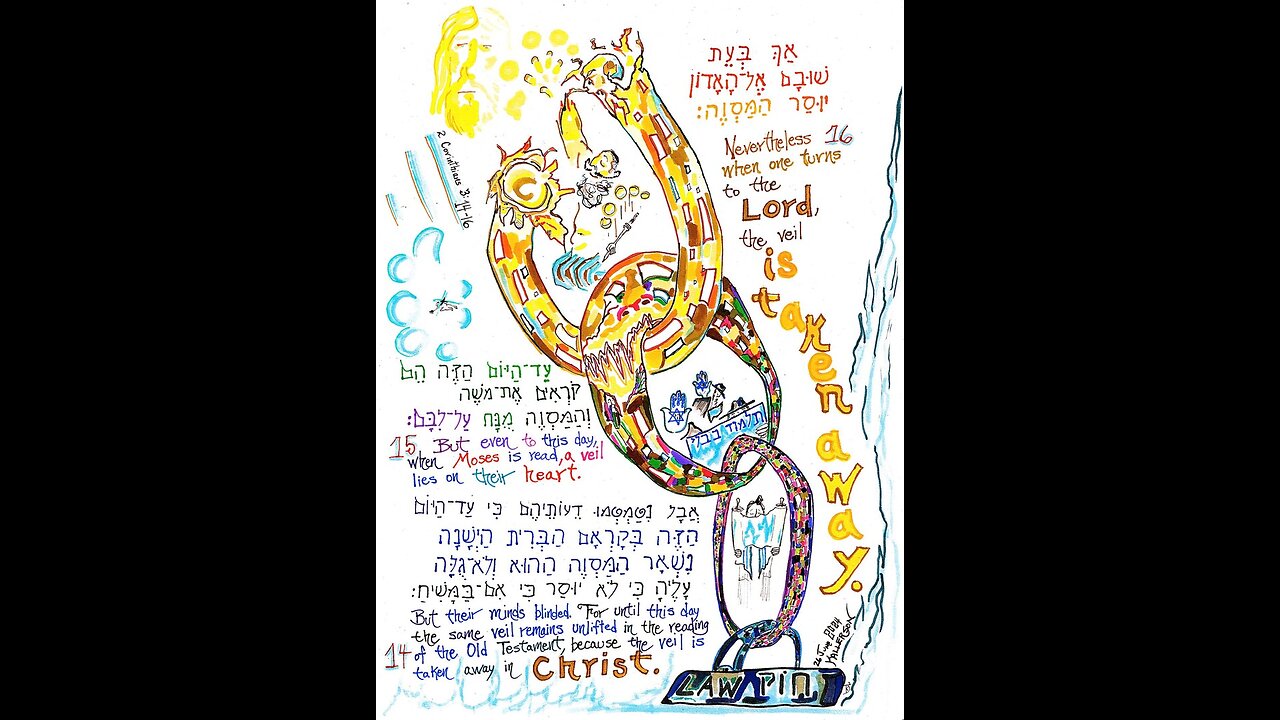 אַךְ בְּעֵת
שׁוּבָם אֶל־הָאָדוֹן
יוּסַר הַמַּסְוֶה:
Nevertheless 16
when one turns
to the
Lord,
the veil
is
taken
away.
2 Corinthians 3:14-16
עַד־הַיּוֹם הַזֶּה הֵם
קֹרְאִים אֶת־מֹשֶׁה
וְהַמַּסְוֶה מֻנָּח עַל־לִבָּם:
15. But even to this day,
when Moses is read, a veil
lies on their heart.
תלמוד בבלי
אֲבָל נִטַּמְטְמוּ דֵעוֹתֵיהֶם כִּי עַד־הַיּוֹם
הַזֶּה בְּקָרְאָם הַבְּרִית הַיְשָׁנָה
נִשְׁאָר הַמַּסְוֶה הַהוּא וְלֹא־גֻלָּה
עָלֶיהָ כִּי לֹא יוּסַר כִּי אִם־בַּמָּשִׁיחַ:
But their minds blinded. For until this day
the same veil remains unlifted in the reading
14 of the Old Testament, because the veil is
taken away in Christ.
26 June 2024
LAW חוק